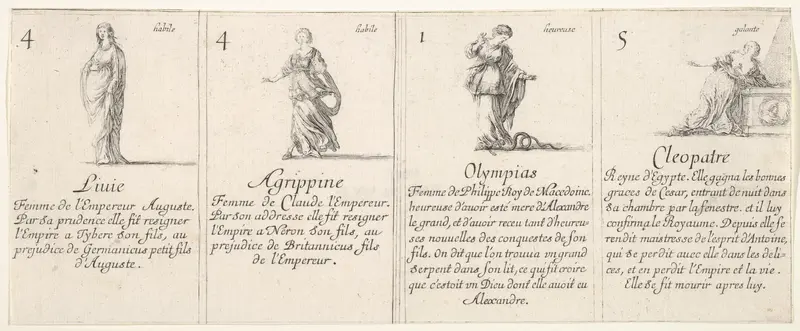 4
habile
Liuie
Femme de l'Empereur Auguste.
Par sa prudence elle fit resigner
l'Empire a Tybere son fils, au
prejudice de Germanicus petit fils
d'Auguste.
4
habile
Agrippine
Femme de Claude l'Empereur.
Par son addresse elle fit resigner
l'Empire a Neron son fils, au
prejudice de Britannicus fils
de l'Empereur.
1
heureuse
Olympias
Femme de Philippe Roy de Macedoine.
heureuse d'auoir esté mere d'Alexandre
le grand, et d'auoir receu tant d'heureu-
ses nouuelles des conquestes de son
fils. On dit que l'on trouua un grand
serpent dans son lit, ce qui fit croire
que c'estoit un Dieu dont elle auoit eu
Alexandre.
5
galante
Cleopatre
Reyne d'Egypte. Elle gagna les bonnes
graces de Cesar, entrant de nuit dans
sa chambre par la fenestre. et il luy
confirma le Royaume. Depuis elle se
rendit maistresse de l'esprit d'Antoine,
qui se perdit auec elle dans les deli-
ces, et en perdit l'Empire et la vie.
Elle se fit mourir apres luy.